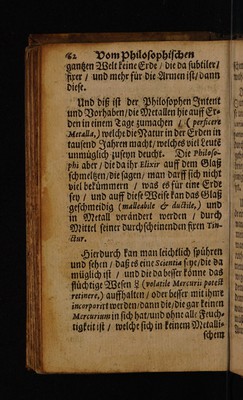 62 Vom Philosophischen
gantzen Welt keine Erde / die da subtiler /
fixer / und mehr für die Armen ist / dann
diese.
Und diß ist der Philosophen Intent
und Vorhaben / die Metallen hie auff Er-
den in einem Tage zumachen / (perficere
Metalla,) welche die Natur in der Erden in
tausend Jahren macht / welches viel Leute
unmüglich zuseyn deucht. Die Philoso-
phi aber / die da ihr Elixir auff dem Glaß
schmeltzen / die sagen / man darff sich nicht
viel bekümmern / was es für eine Erde
sey / und auff diese Weise kan das Glaß
geschmeidig (malleabile & ductile,) und
in Metall verändert werden / durch
Mittel seiner durchscheinenden fixen Tin-
ctur.
Hierdurch kan man leichtlich spühren
und sehen / daß es eine Scientia seye / die da
müglich ist / und die da besser könne das
flüchtige Wesen ☿ (volatile Mercurii poteſt
retinere,) auffhalten / oder besser mit ihme
incorporirt werden / dann die / die gar keinen
Mercurium in sich hat / und ohne alle Feuch-
tigkeit ist / welche sich in keinem Metalli-
schem